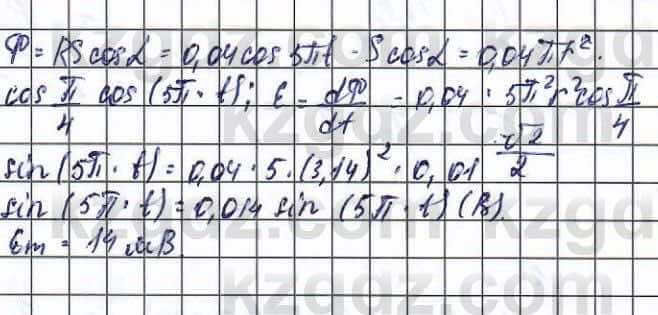 Ф = BS cos α = 0,04 cos 5πt · S cos α = 0,04 π r².
cos π/4 cos (5π · t); ε = dФ/dt = 0,04 · 5π² r² cos π/4
sin (5π · t) = 0,04 · 5 · (3,14)² · 0,01 √2/2
sin (5π · t) = 0,014 sin (5π · t) (В).
εm = 14 мВ.